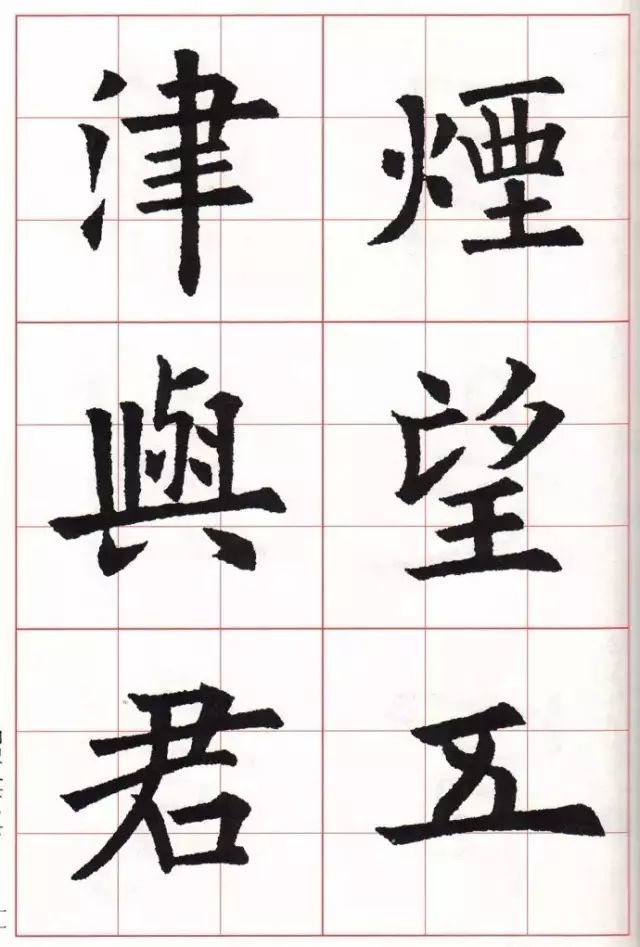 煙望五
津與君